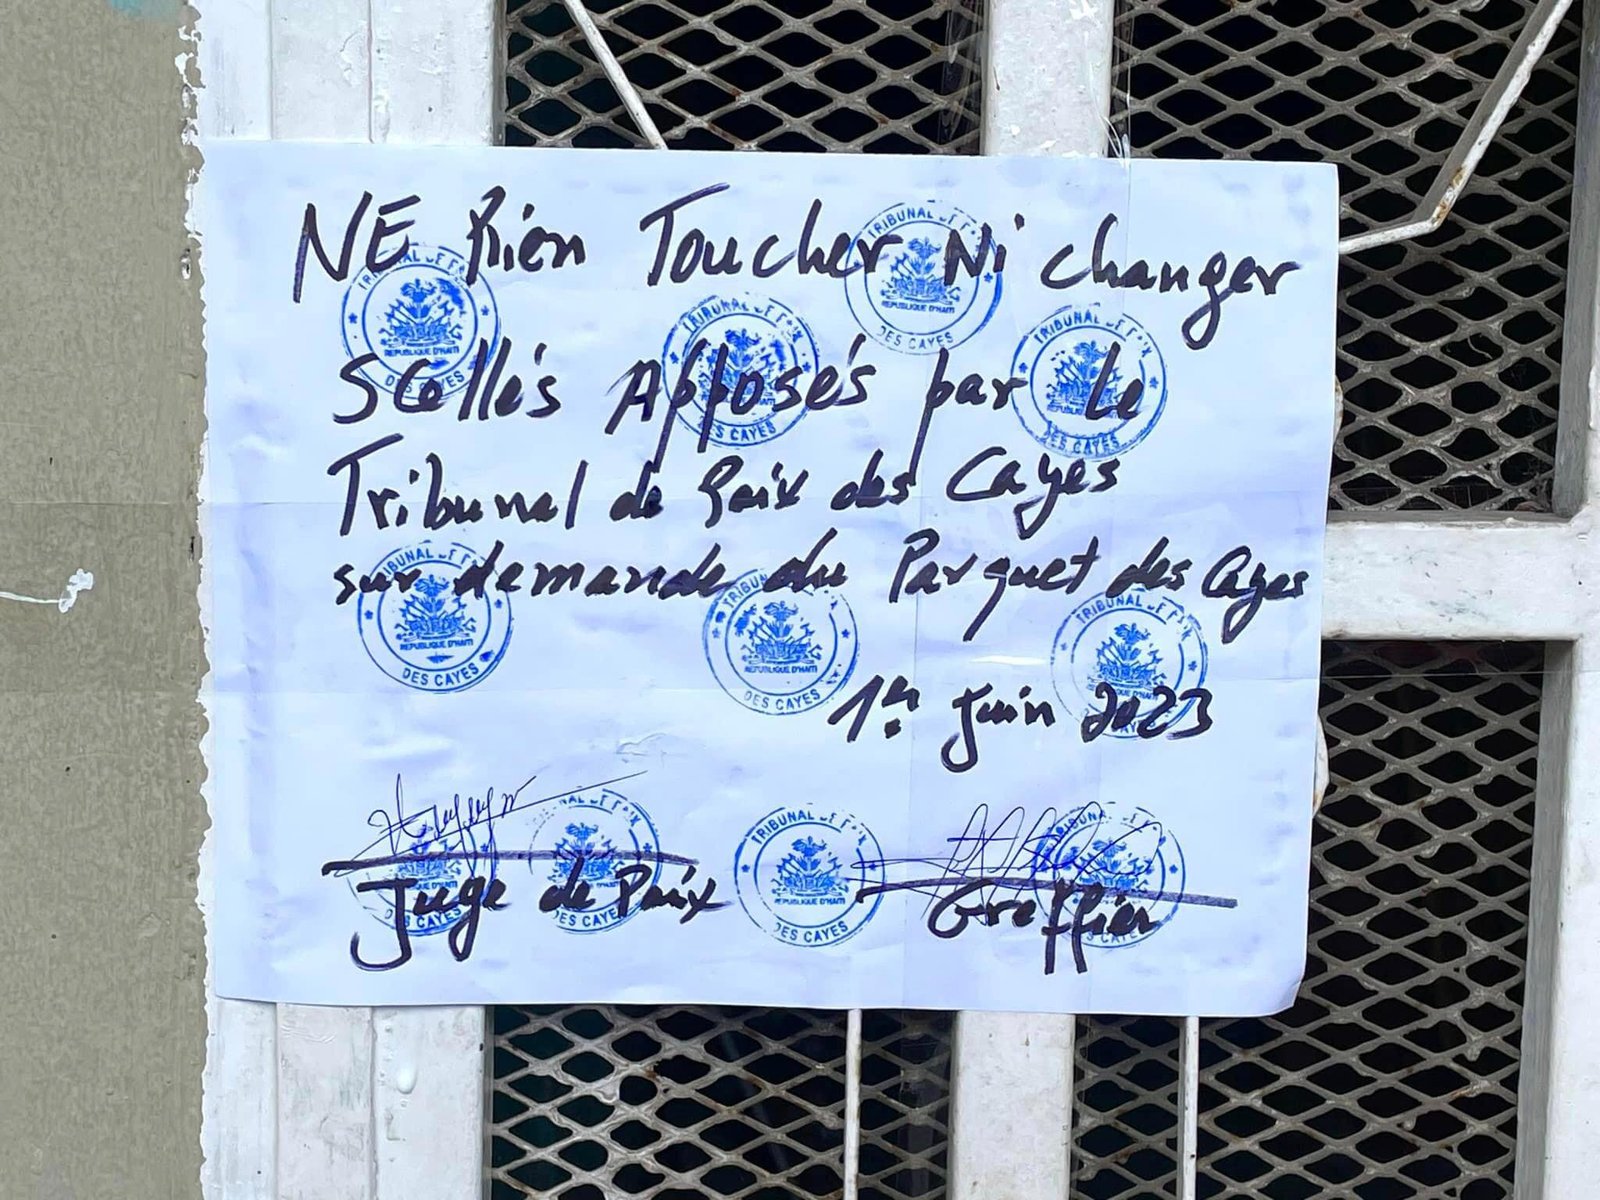 NE Rien Toucher Ni changer
Scellés Apposés par Le
Tribunal de Paix des Cayes
sur demande du Parquet des Cayes
1er Juin 2023
Juge de Paix
Greffier
TRIBUNAL DE PAIX
REPUBLIQUE D'HAITI
DES CAYES
TRIBUNAL DE PAIX
REPUBLIQUE D'HAITI
DES CAYES